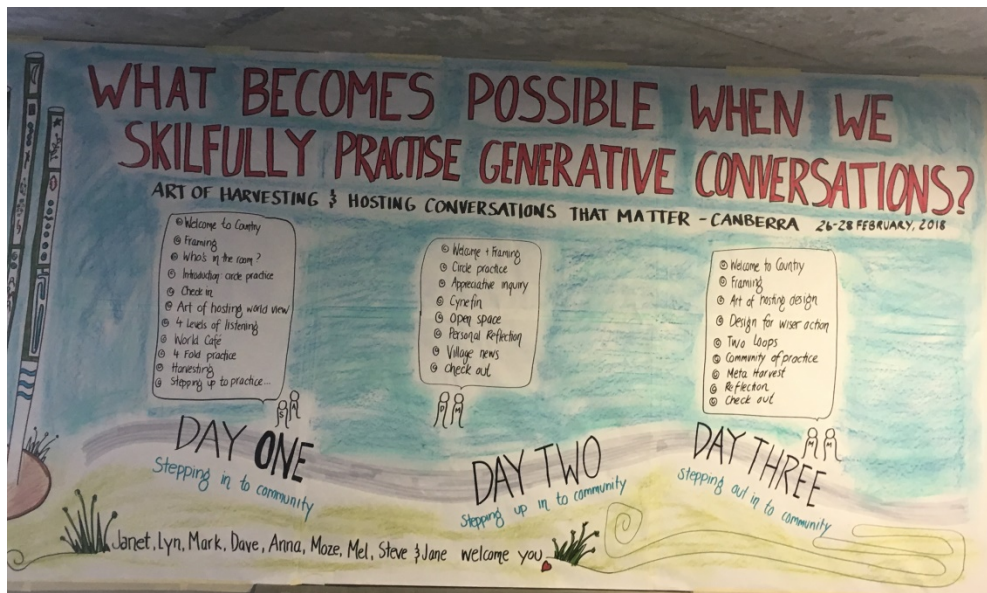 WHAT BECOMES POSSIBLE WHEN WE
SKILFULLY PRACTISE GENERATIVE CONVERSATIONS?
ART OF HARVESTING & HOSTING CONVERSATIONS THAT MATTER - CANBERRA 26-28 FEBRUARY, 2018
Welcome to Country
Framing
Who's in the room?
Introduction circle practice
Check in
Art of hosting world view
4 Levels of listening
World Café
4 Fold practice
Harvesting
Stepping up to practice...
DAY ONE
Stepping in to community
Welcome + Framing
Circle practice
Appreciative inquiry
Cynefin
Open space
Personal Reflection
Village news
Check out
DAY TWO
Stepping up in to community
Welcome to Country
Framing
Art of hosting design
Design for wiser action
Two Loops
Community of practice
Meta Harvest
Reflection
Check out
DAY THREE
stepping out in to community
Janet, Lyn, Mark, Dave, Anna, Moze, Mel, Steve & Jane welcome you